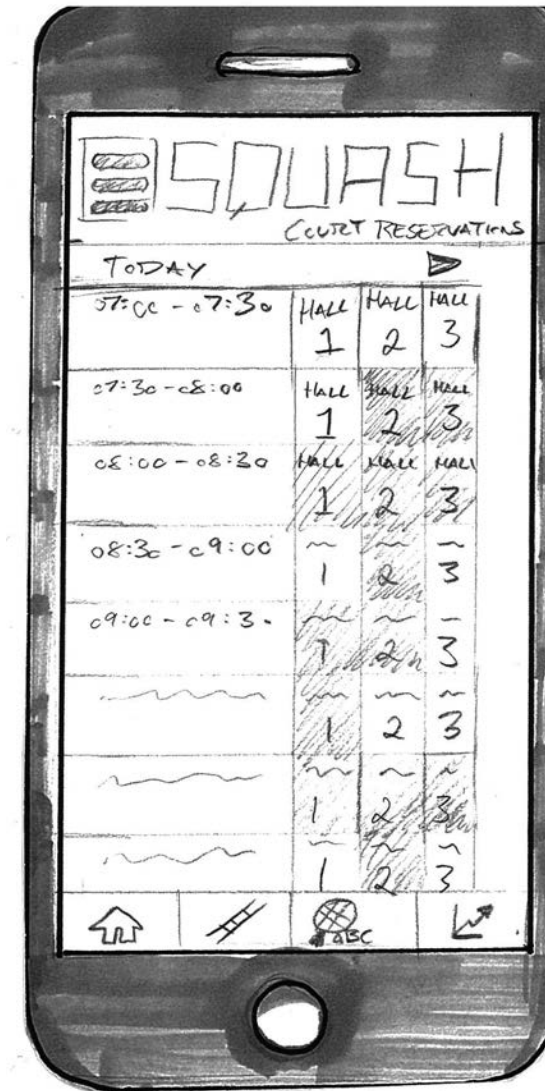 SQUASH
COURT RESERVATIONS
TODAY
07:00 - 07:30 HALL 1 HALL 2 HALL 3
07:30 - 08:00 HALL 1 HALL 2 HALL 3
08:00 - 08:30 HALL 1 HALL 2 HALL 3
08:30 - 09:00 1 2 3
09:00 - 09:30 1 2 3
1 2 3
1 2 3
1 2 3
ABC